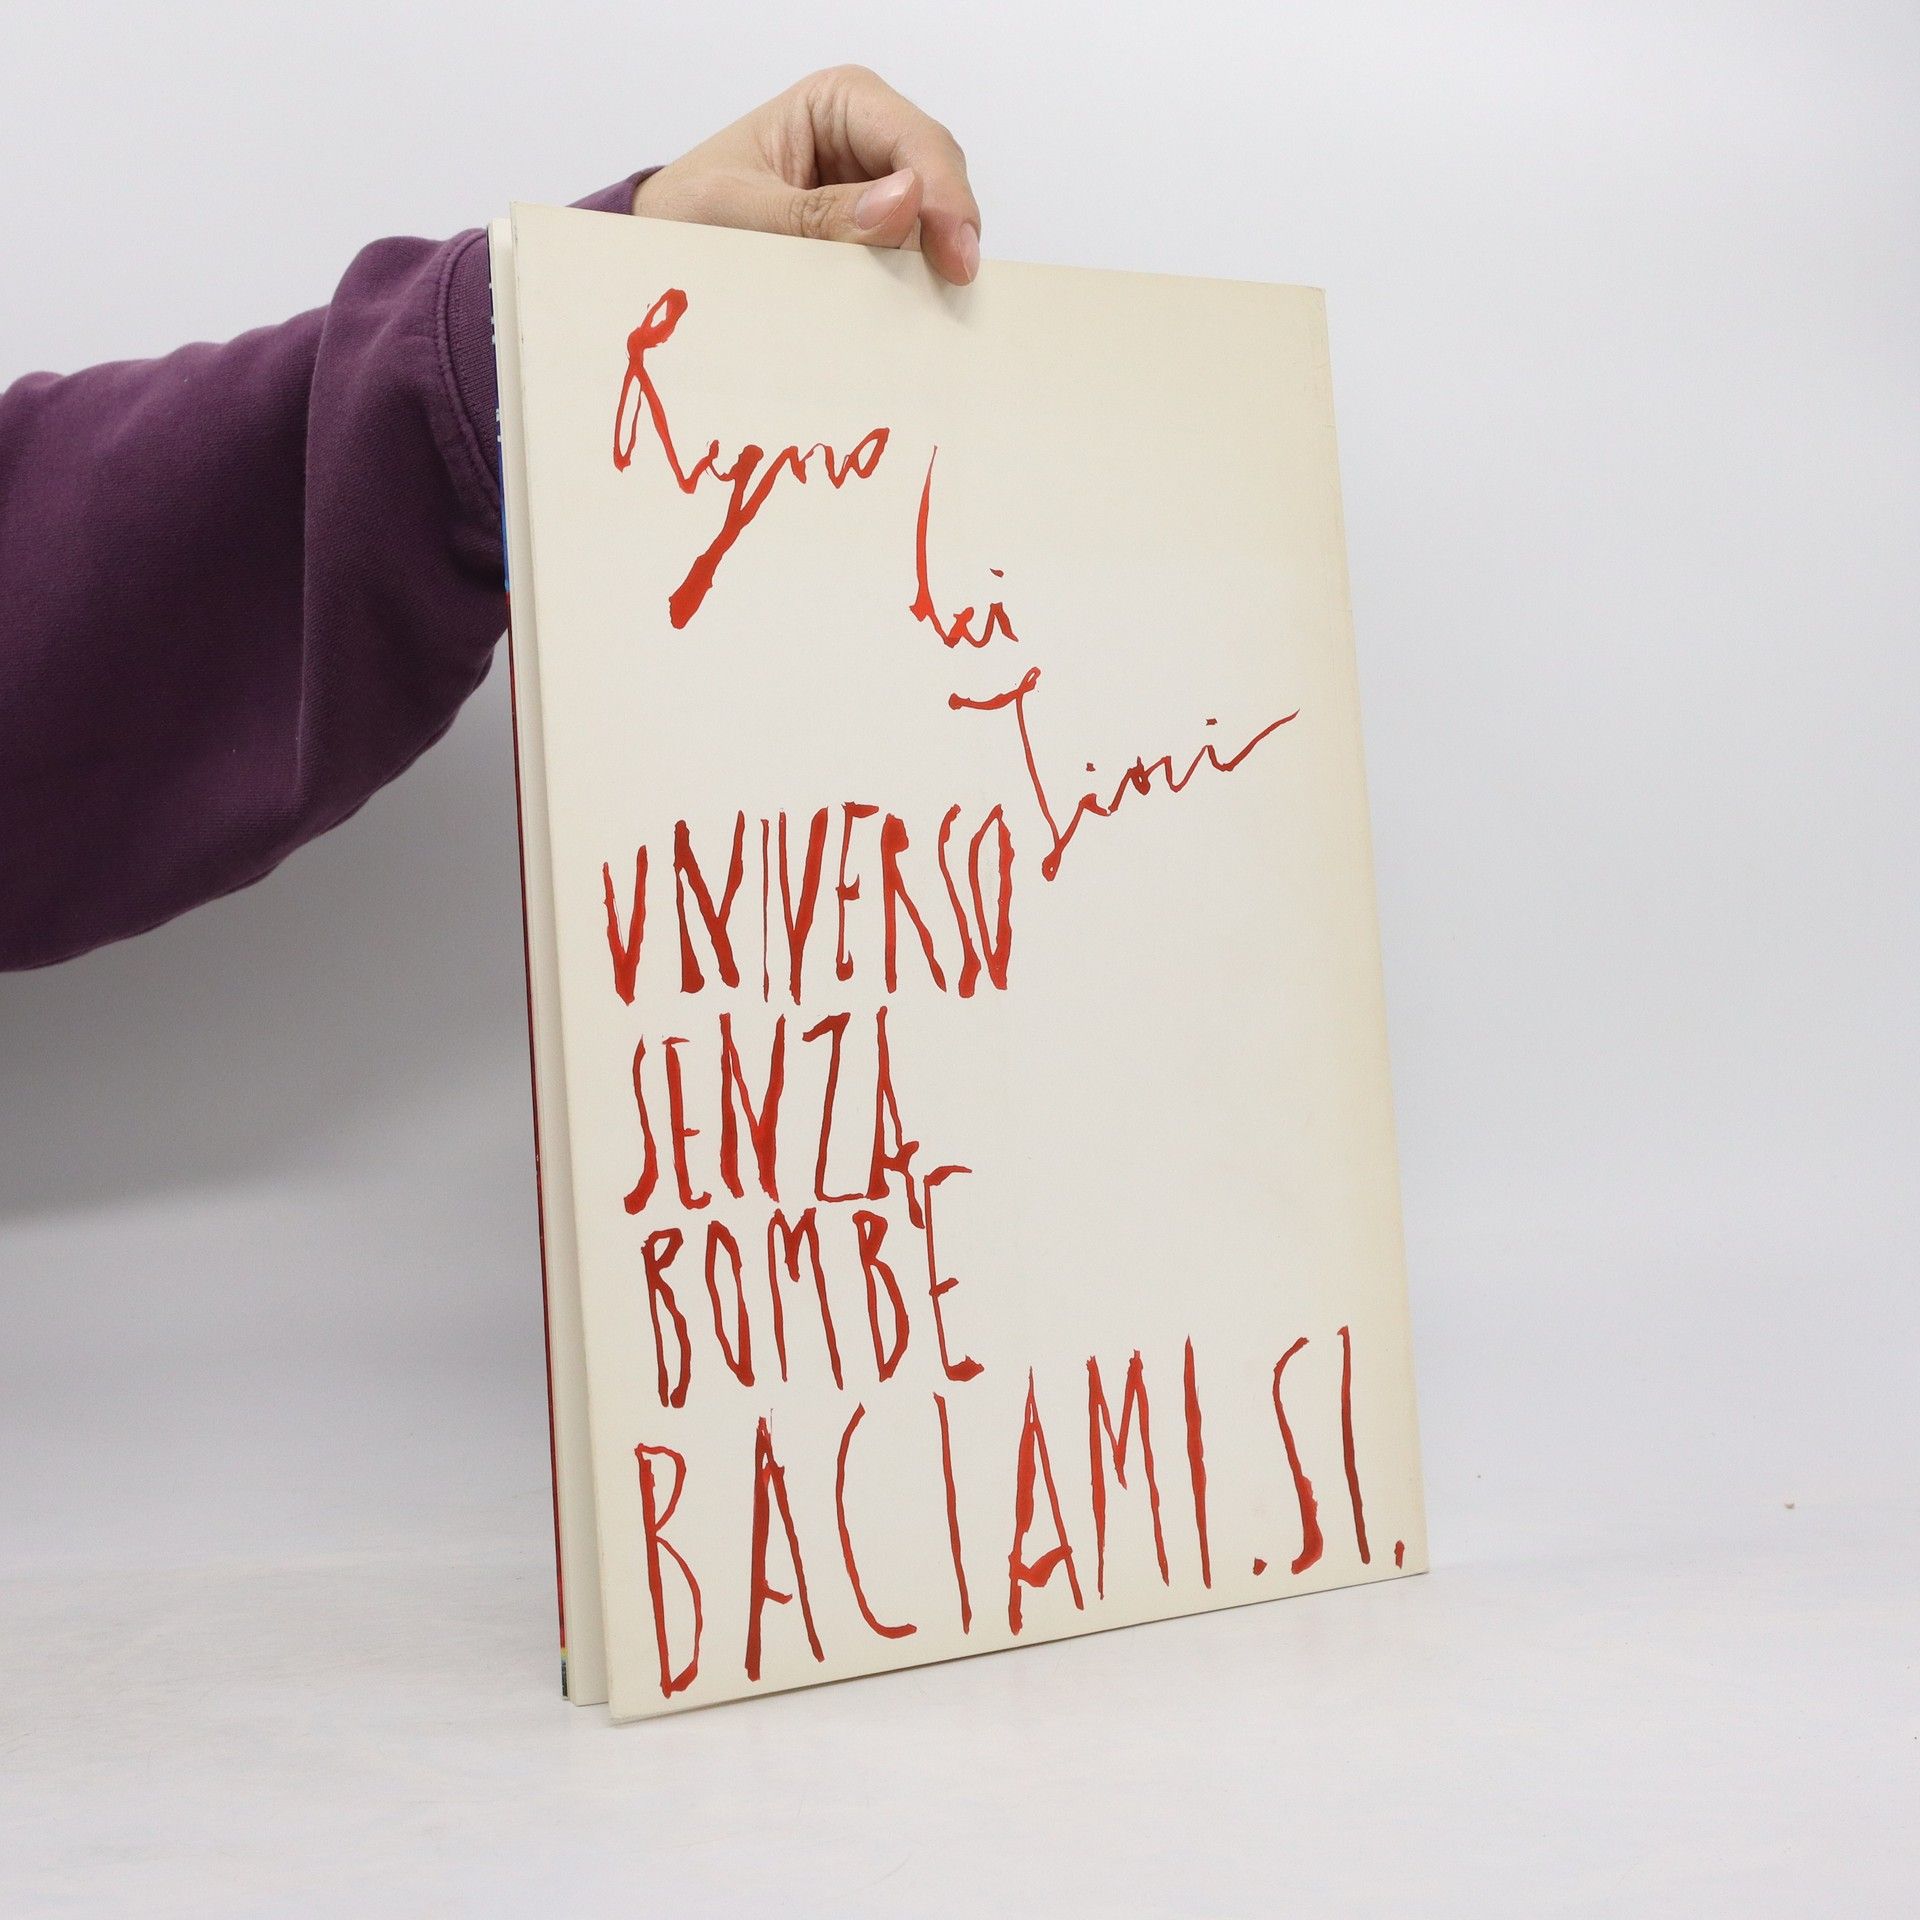 Regno
dei
Fiori
UNIVERSO
SENZA
BOMBE
BACIAMI.SI.